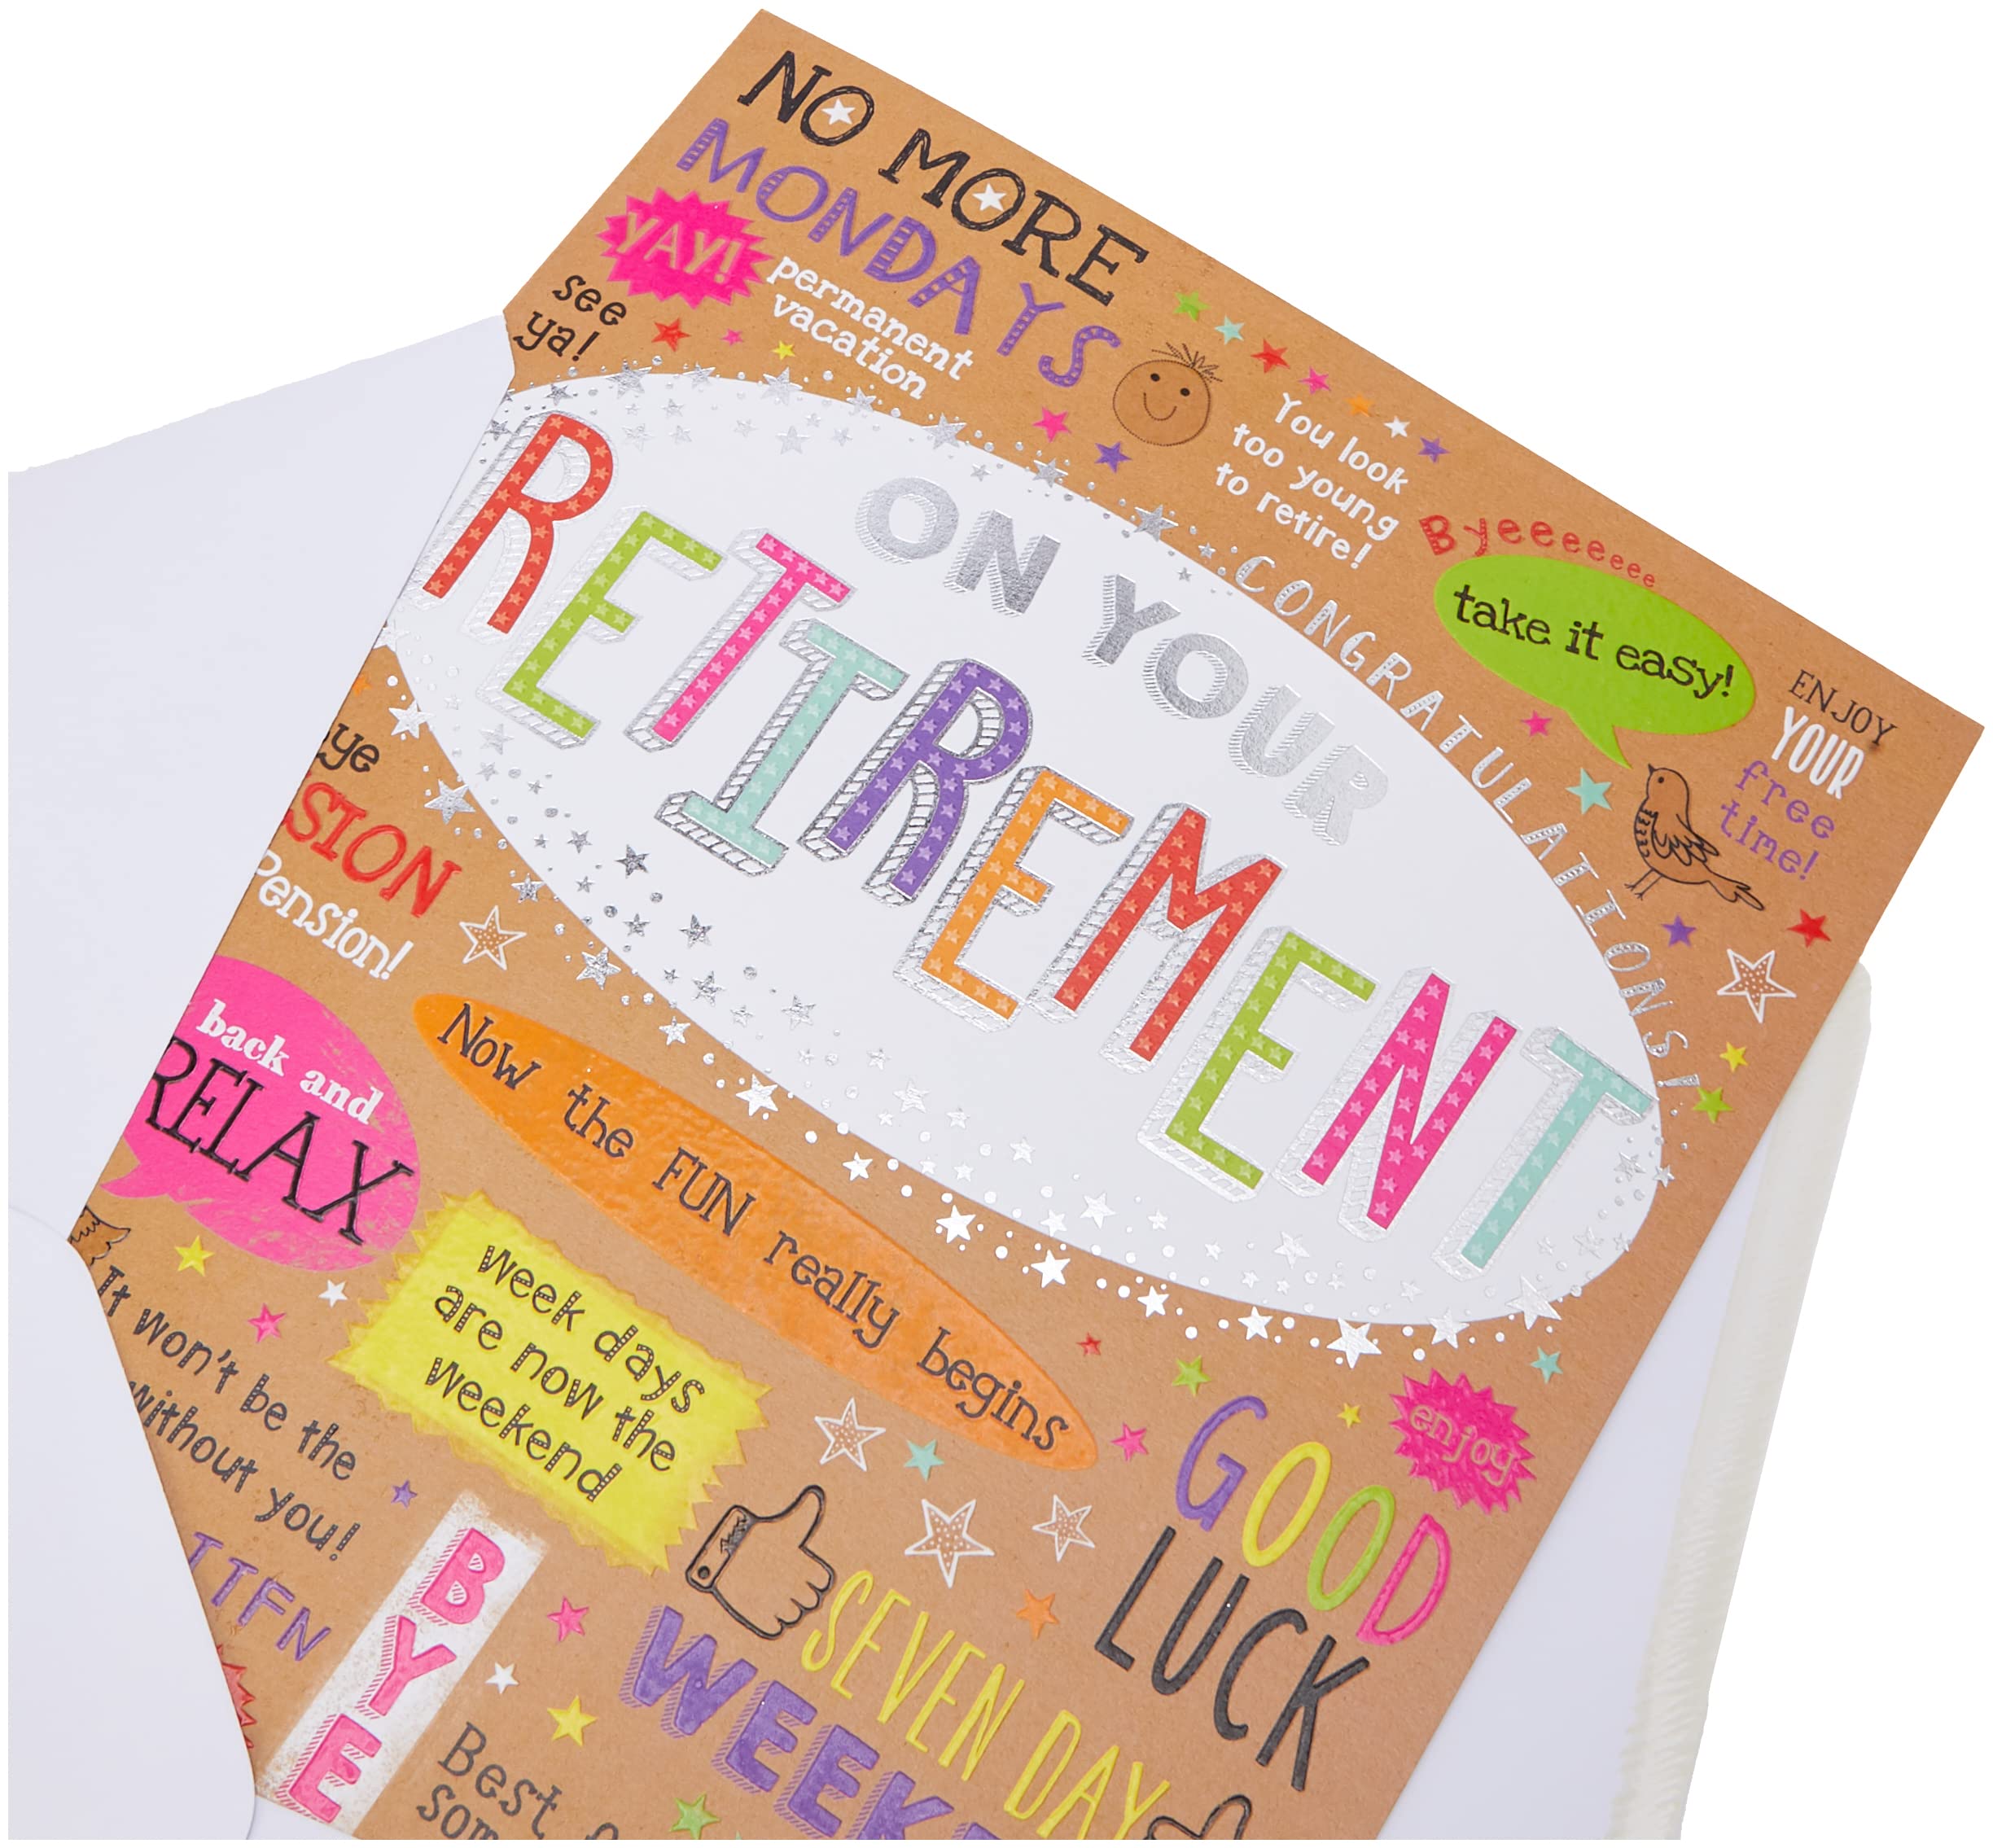 NO MORE
MONDAYS
YAY!
see
ya!
permanent
vacation
You look
too young
to retire!
Byeeeeeee
take it easy!
ENJOY
YOUR
free
time!
CONGRATULATIONS!
ON YOUR
RETIREMENT
ye
SION
Pension!
back and
RELAX
Now the FUN really begins
week days
are now the
weekend
It won't be the
without you!
TTFN
BYE
GOOD
LUCK
enjoy
SEVEN DAY
WEEK
Best
som